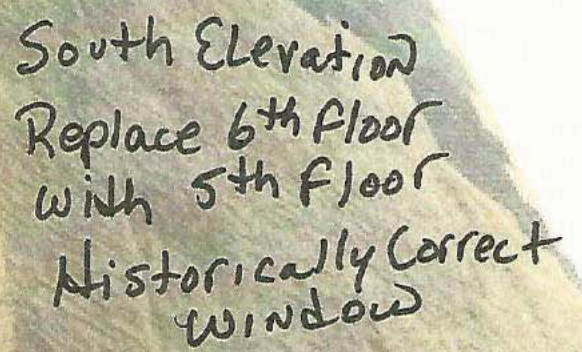 South Elevation
Replace 6th floor
with 5th floor
Historically Correct
window